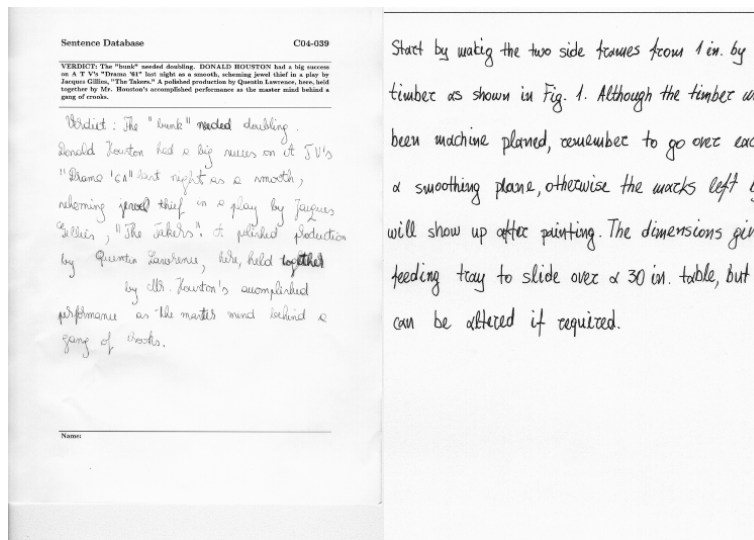 Sentence Database C04-039
VERDICT: The "bunk" needed doubling. DONALD HOUSTON had a big success
on A T V's "Drama '61" last night as a smooth, scheming jewel thief in a play by
Jacques Gillies, "The Takers." A polished production by Quentin Lawrence, here, held
together by Mr. Houston's accomplished performance as the master mind behind a
gang of crooks.
Verdict: The "bunk" needed doubling.
Donald Houston had a big succes on A TV's
"Drama '61" last night as a smooth,
scheming jewel thief in a play by Jacques
Gillies, "The Takers". A polished production
by Quentin Lawrence, here, held together
by Mr. Houston's accomplished
performance as the master mind behind a
gang of crooks.
Name:
Start by making the two side frames from 1 in. by
timber as shown in Fig. 1. Although the timber
been machine planed, remember to go over
a smoothing plane, otherwise the marks left
will show up after painting. The dimensions
feeding tray to slide over a 30 in. table, but
can be altered if required.